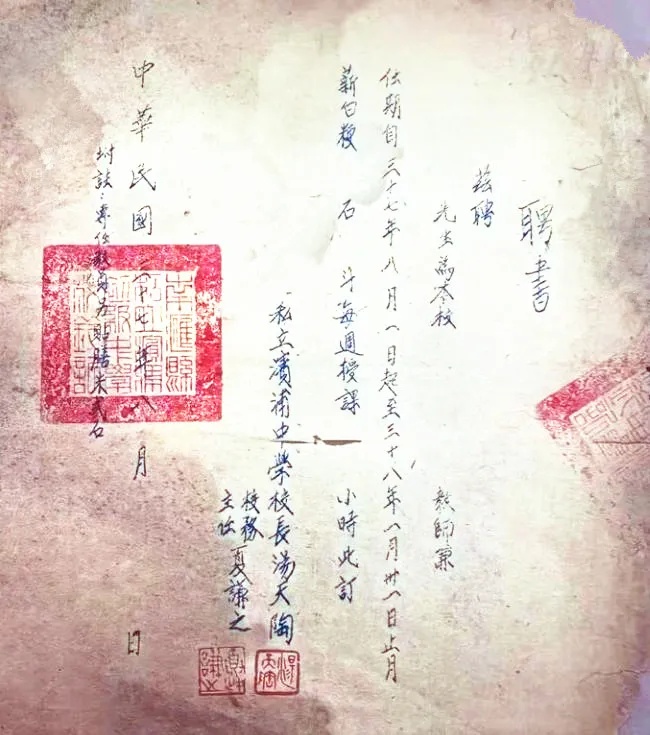 聘書
茲聘
先生為本校 教師兼
任期自三十七年八月一日起至三十八年一月卅一日止月
薪白粳 石 斗每週授課 小時此訂
私立濱浦中學校長湯天陶
校務
主任 夏謙之
中華民國三十七年八月 日
附註：專任教員另貼膳米貳石